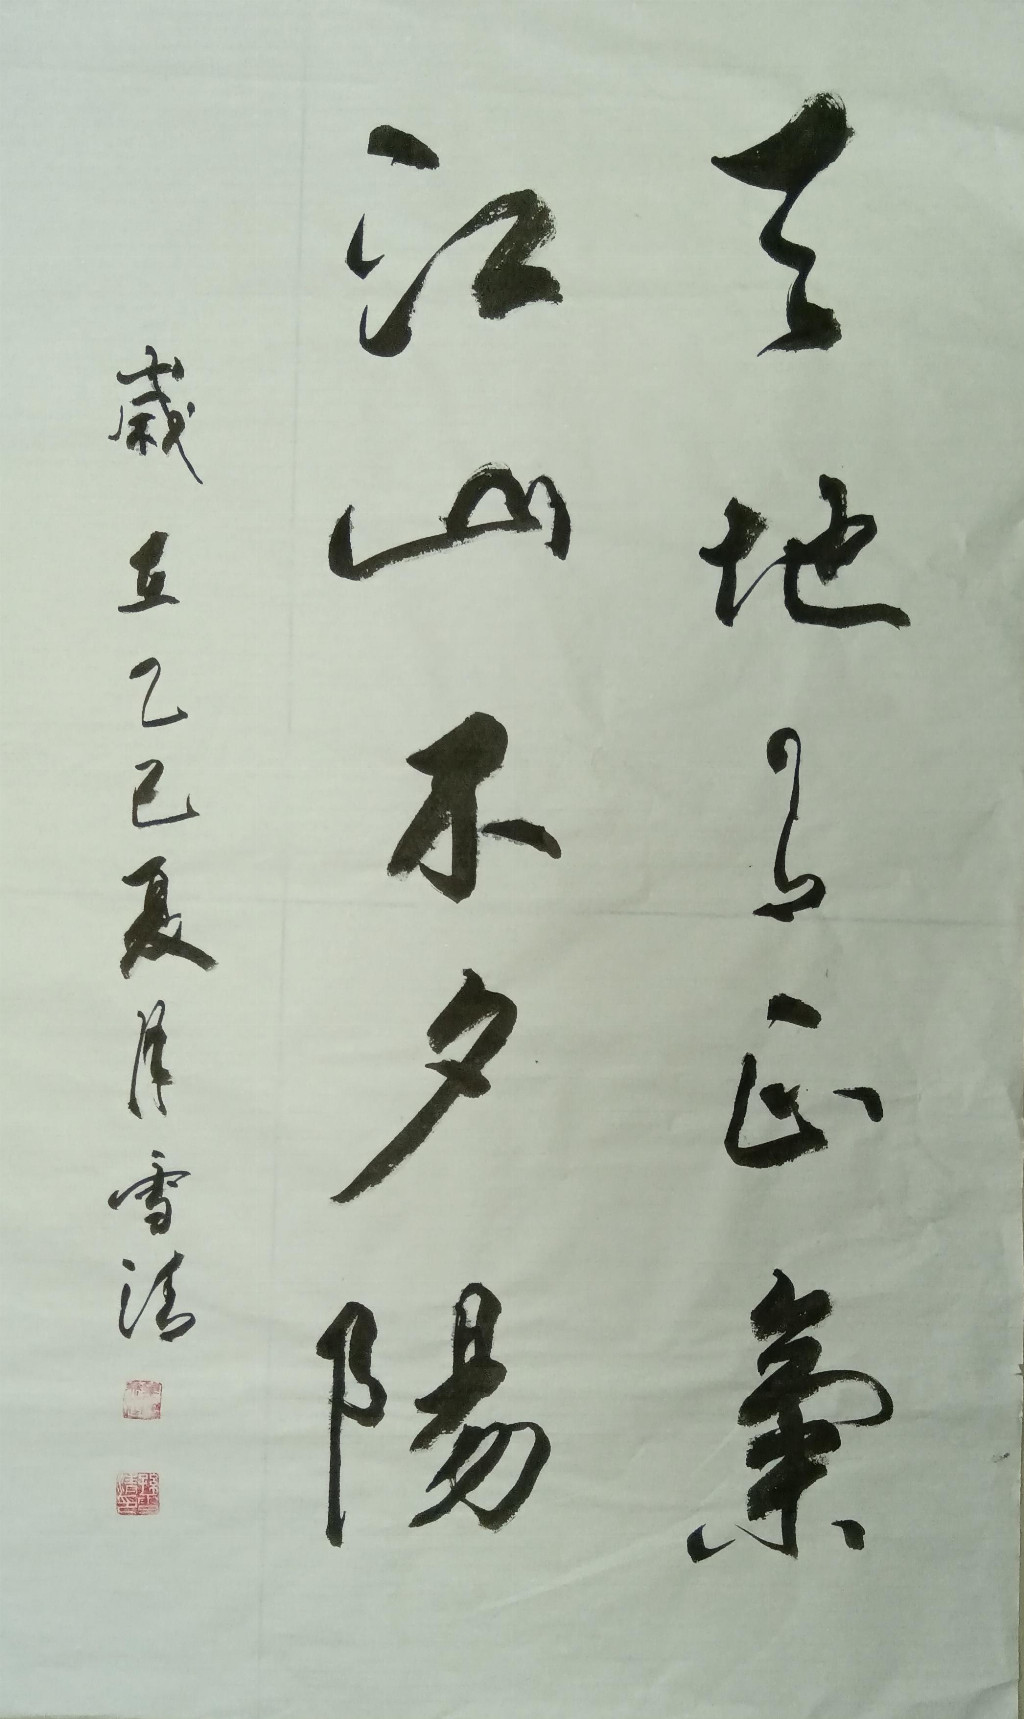 天地有正氣
江山不夕陽
歲在乙巳夏月雪清